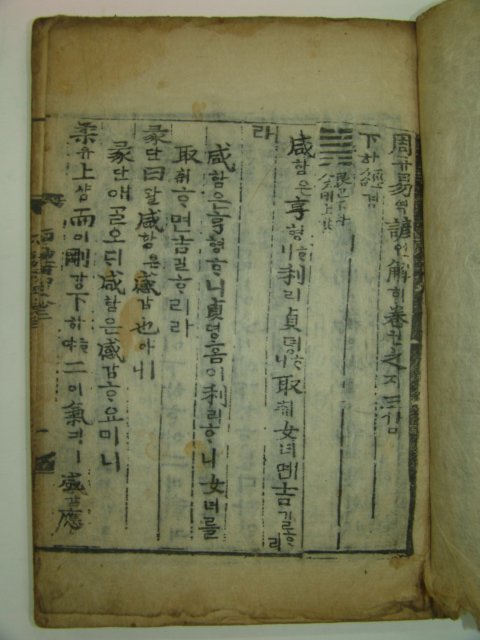 周쥬易역諺언解ᄒᆡ卷권之지三삼
下하經경
䷞ 艮下 兌上
咸함은亨형ᄒᆞ니利리貞뎡ᄒᆞ니取ᄎᆔ女녀면吉길ᄒᆞ리
라
咸함은亨형ᄒᆞ니貞뎡홈이利리ᄒᆞ니女녀를
取ᄎᆔᄒᆞ면吉길ᄒᆞ리라
彖단曰왈咸함은感감也야ㅣ니
彖단애ᄀᆞᆯ오ᄃᆡ咸함은感감홈이니
柔유上샹而이剛강下하ᄒᆞ야二이氣긔ㅣ感감應응